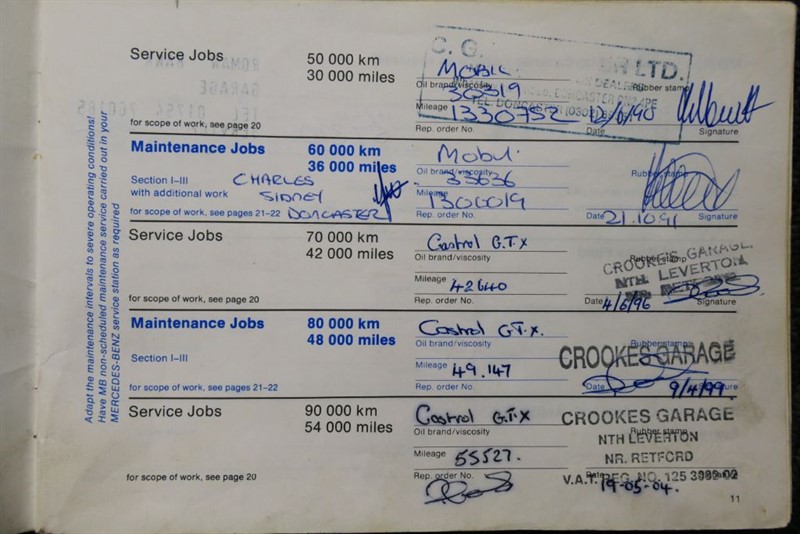 Service Jobs 50 000 km
30 000 miles
MOBIL
Oil brand/viscosity
30319
Mileage
1330752
Rep. order No.
for scope of work, see page 20
C. G. LTD.
Rubber stamp
DONCASTER
TEL. DONCASTER
Date 12/6/90
Signature
Maintenance Jobs 60 000 km
36 000 miles
Section I–III
with additional work
for scope of work, see pages 21–22
CHARLES
SIDNEY
DONCASTER
Mobil
Oil brand/viscosity
33636
Mileage
1300019
Rep. order No.
Rubber stamp
Date 21.10.91
Signature
Service Jobs 70 000 km
42 000 miles
Castrol G.T.X
Oil brand/viscosity
Mileage
42640
Rep. order No.
for scope of work, see page 20
Rubber stamp
CROOKES GARAGE.
NTH LEVERTON
NR RETFORD
Date 4/6/96
Signature
Maintenance Jobs 80 000 km
48 000 miles
Section I–III
for scope of work, see pages 21–22
Castrol G.T.X.
Oil brand/viscosity
Mileage 49.147
Rep. order No.
Rubber stamp
CROOKES GARAGE
Date 9/4/99.
Signature
Service Jobs 90 000 km
54 000 miles
Castrol G.T.X
Oil brand/viscosity
Mileage
55527.
Rep. order No.
for scope of work, see page 20
CROOKES GARAGE
Rubber stamp
NTH LEVERTON
NR. RETFORD
Date
V.A.T. REG. NO. 125
19-05-04.
11
Adapt the maintenance intervals to severe operating conditions!
Have MB non-scheduled maintenance service carried out in your
MERCEDES-BENZ service station as required